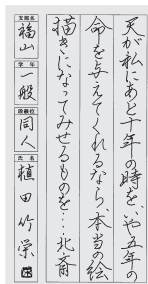 天が私にあと十年の時を、いや五年の
命を与えてくれるなら、本当の絵
描きになってみせるものを…北斎
支部名
福山
学年
一般
段級位
同人
氏名
植田竹栄